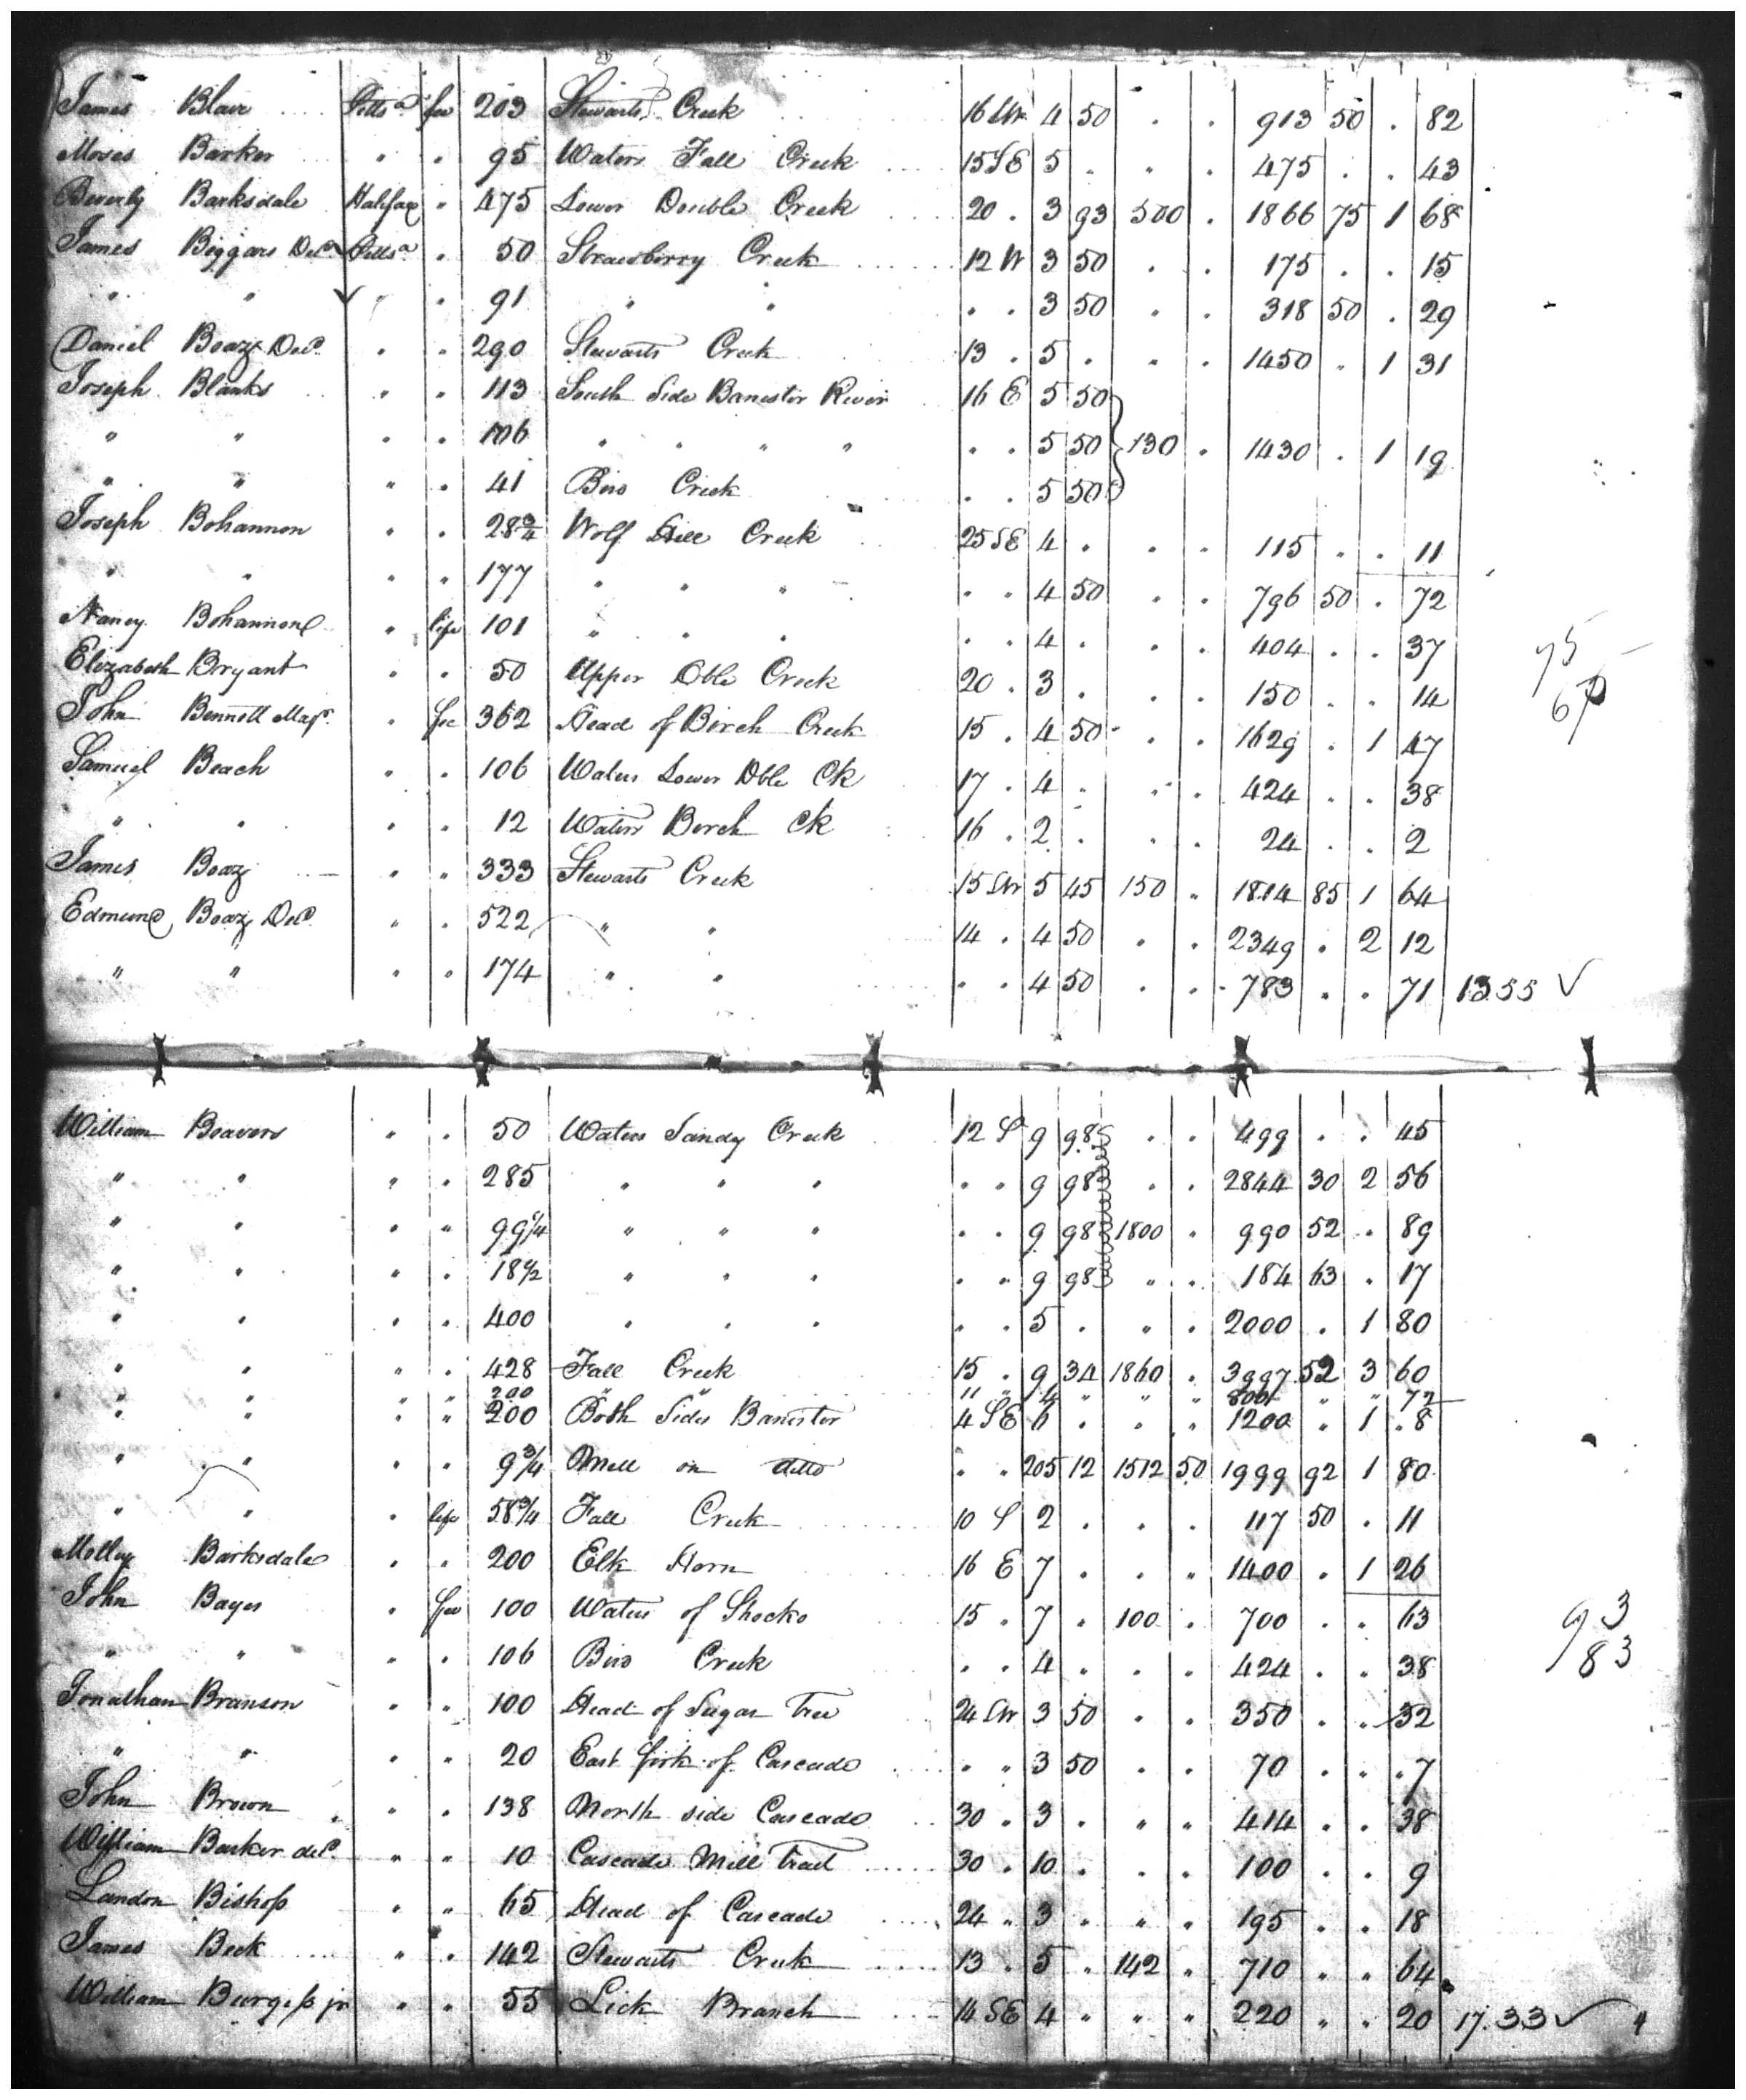 James Blair Pitts a fee 203 Stewarts Creek 16 SW 4 50 . . 913 50 . 82
Moses Barker " . 95 Waters Fall Creek 15 SE 5 . " . 475 . . 43
Beverly Barksdale Halifax " 475 Lower Double Creek 20 . 3 93 500 . 1866 75 1 68
James Biggars Decd Pittsa . 50 Strawberry Creek 12 W 3 50 . . 175 . . 15
" " " 91 " " . . 3 50 " . 318 50 . 29
Daniel Boaz Decd . . 290 Stewarts Creek 13 . 5 . " . 1450 . 1 31
Joseph Blanks " . 113 South Side Banister River 16 E 5 50
" " " . 106 " " " " . . 5 50 130 . 1430 . 1 19
" " " . 41 Birs Creek . . 5 50
Joseph Bohannon " . 28 3/4 Wolf Hill Creek 25 SE 4 . . . 115 " . 11
" " " " 177 " " " . . 4 50 . . 796 50 . 72
Nancy Bohannon " life 101 " " " . . 4 . . . 404 . . 37
Elizabeth Bryant " . 50 Upper Dble Creek 20 . 3 . . . 150 . . 14
John Bennett Majr . fee 362 Head of Birch Creek 15 . 4 50 . . 1629 . 1 47
Samuel Beach " . 106 Waters Lower Dble Ck 17 . 4 . " . 424 . . 38
" " " . 12 Waters Birch Ck 16 . 2 . . . 24 . . 2
James Boaz " " 333 Stewarts Creek 15 SW 5 45 150 " 1814 85 1 64
Edmund Boaz Decd " . 522 " " 14 . 4 50 . . 2349 . 2 12
" " " " 174 " " . . 4 50 . . 783 . . 71 13.55 ✓
75
67
William Beavers " . 50 Waters Sandy Creek 12 S 9 98 . . 499 . . 45
" " " . 285 " " " . " 9 98 . . 2844 30 2 56
" " " " 99 1/4 " " " . . 9 98 1800 " 990 52 . 89
" " " . 18 1/2 " " " . " 9 98 " . 184 63 . 17
" " " . 400 " " " . . 5 . " . 2000 . 1 80
" " " . 428 Fall Creek 15 . 9 34 1860 . 3997 52 3 60
" " 200 " " 11 " 4 " " " 800 " " 72
" " " " 200 Both Sides Banister 4 SE 6 . . " 1200 " 1 . 8
" " " . 9 3/4 Mill on ditto . . 205 12 1512 50 1999 92 1 80
" " . life 58 3/4 Fall Creek 10 S 2 . . . 117 50 . 11
Molley Barksdale . . 200 Elk Horn 16 E 7 . . " 1400 . 1 26
John Bayes . fee 100 Waters of Shocko 15 " 7 . 100 . 700 . . 63
" " " . 106 Birs Creek . . 4 . . . 424 . . 38
Jonathan Branson " . 100 Head of Sugar Tree 24 SW 3 50 . . 350 . . 32
" " " " 20 East fork of Cascade . " 3 50 . . 70 . " 7
John Brown " . 138 North side Cascade 30 " 3 . " " 414 . . 38
William Barker decd " " 10 Cascade Mill Tract 30 . 10 . . . 100 . . 9
Landon Bishop " " 65 Head of Cascade 24 " 3 . " . 195 . . 18
James Beck " . 142 Stewarts Creek 13 . 5 . 142 " 710 " " 64
William Burgess jr " " 55 Lick Branch 14 SE 4 " " " 220 " . 20 17.33 ✓
93
83